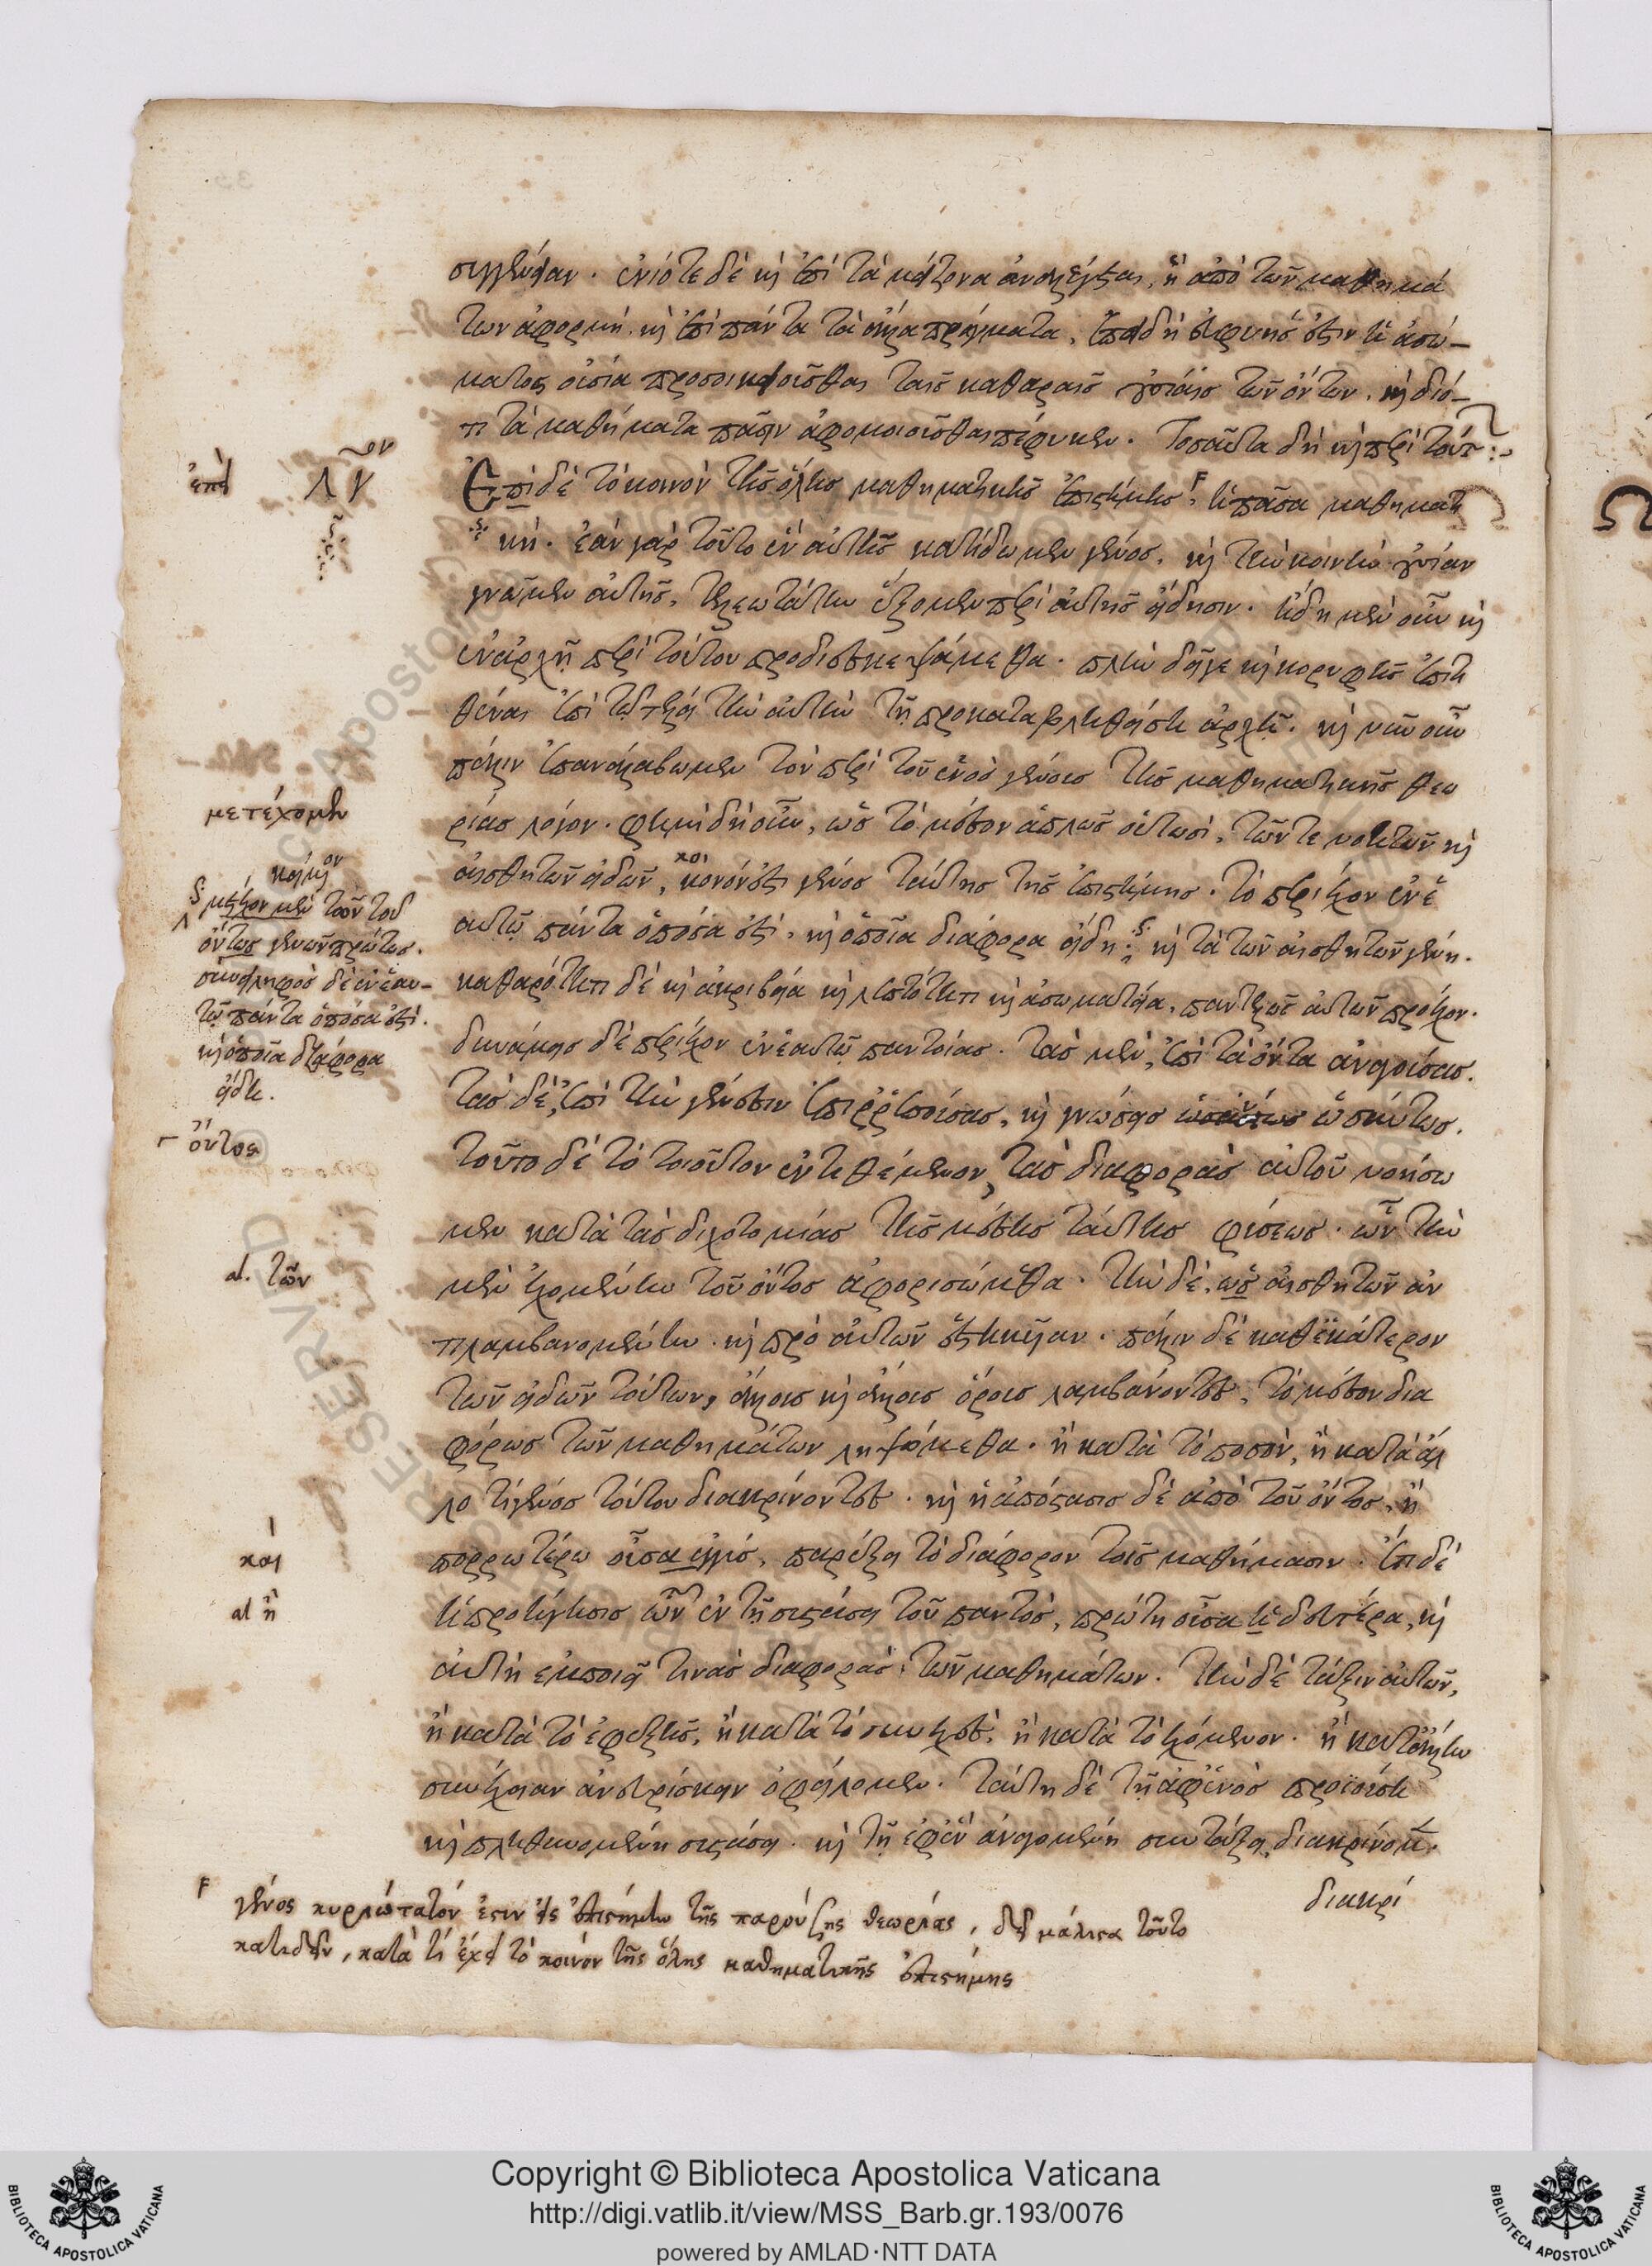 συγγένειαν. ἐνίοτε δὲ καὶ ἐπὶ τὰ μείζονα ἀνελέγχεται, ἡ ἀπὸ τῶν μαθημά
των ἀφορμή. καὶ ἐπὶ πάντα τὰ ἄλλα πράγματα, ἐπειδὴ εὐφυής ἐστιν ἡ ἀσώ-
ματος οὐσία προσοικειοῦσθαι ταῖς καθαραῖς οὐσίαις τῶν ὄντων. καὶ διό-
τι τὰ μαθήματα πᾶσιν ἀφομοιοῦσθαι πέφυκεν. Τοσαῦτα δὴ καὶ περὶ τούτ:~
Ἐπὶ δὲ τὸ κοινὸν τῆς ὅλης μαθηματικῆς ἐπιστήμης, ἡ πᾶσα μαθηματι
κή. ἐὰν γὰρ τοῦτο ἓν αὐτῆς κατίδωμεν γένος, καὶ τὴν κοινὴν οὐσίαν
γνῶμεν αὐτῆς, τελεωτάτην ἕξομεν περὶ αὐτῆς εἴδησιν. ἤδη μὲν οὖν καὶ
ἐν ἀρχῇ περὶ τούτου προδιεσκεψάμεθα. πλὴν δεῖ γε καὶ κορυφῆς ἐπιτι
θέναι ἐπὶ τῷ τέλει τὴν αὐτὴν τῇ προκαταβληθείσῃ ἀρχῇ. καὶ νῦν οὖν
πάλιν ἐπαναλάβωμεν τὸν περὶ τοῦ ἑνὸς γένους τῆς μαθηματικῆς θεω
ρίας λόγον. φημὶ δὴ οὖν, ὡς τὸ μέσον ἁπλῶς οὑτωσὶ, τῶν τε νοητῶν καὶ
αἰσθητῶν εἰδῶν, κοι
μονόν ἐστι γένος ταύτης τῆς ἐπιστήμης. τὸ περιέχον ἐν ἑ
αυτῷ πάντα ὁπόσα ἐστὶ, καὶ ὁποῖα διάφορα εἴδη. καὶ τὰ τῶν αἰσθητῶν γένη.
καθαρότητι δὲ καὶ ἀκριβείᾳ καὶ λεπτότητι καὶ ἀσωματείᾳ, παντελῶς αὐτῶν προέχον.
δυνάμεις δὲ περιέχον ἐν ἑαυτῷ παντοίας. τὰς μὲν, ἐπὶ τὰ ὄντα ἀναγούσας.
τὰς δὲ, ἐπὶ τὴν γένεσιν ἐπιρρεπούσας, καὶ γνώσεις ὡσαύτως.
τοῦτο δὲ τὸ τοιοῦτον ἐντιθέμενον, τὰς διαφορὰς αὐτοῦ νοήσω
μεν κατὰ τὰς διχοτομίας τῆς μέσης ταύτης φύσεως. ὧν τὴν
μὲν ἐχομένην τοῦ ὄντος ἀφορισώμεθα. τὴν δὲ, ὡς αἰσθητῶν ἀν
τιλαμβανομένην. καὶ πρὸ αὐτῶν ἑστηκυῖαν. πάλιν δὲ καθ' ἑκάτερον
τῶν εἰδῶν τούτων, ἄλλοις καὶ ἄλλοις ὅροις λαμβάνοντες, τὸ μέσον δια
φόρως τῶν μαθημάτων ληψόμεθα. ἢ κατὰ τὸ ποσὸν, ἢ κατὰ ἄλ
λο τι γένος τούτου διακρίνοντες. καὶ ἡ ἀπόστασις δὲ ἀπὸ τοῦ ὄντος, ἢ
πορρωτέρω οὖσα ἐγγὺς, παρέξει τὸ διάφορον τοῖς μαθήμασιν. ἔτι δὲ
ἡ προήγησις ὧν ἐν τῇ συστάσει τοῦ παντὸς, πρώτη οὖσα ἢ δευτέρα, καὶ
αὐτὴ ἐμποιεῖ τινὰς διαφορὰς τῶν μαθημάτων. τὴν δὲ τάξιν αὐτῶν,
ἢ κατὰ τὸ ἐφεξῆς, ἢ κατὰ τὸ συνεχὲς, ἢ κατὰ τὸ ἐχόμενον. ἢ κατ' ἄλλην
συνέχειαν ἀνευρίσκειν ὀφείλομεν. ταύτῃ δὲ τῇ ἀφ' ἑνὸς προϊούσῃ
καὶ πληθυνομένῃ συστάσει. καὶ τῇ ἐφ' ἓν ἀναγομένῃ συντάξει, διακρίνομεν.
διακρί
ἐπεὶ
λν ον
μετέχομεν
μετέχον μὲν τῶν τοῦ
ὄντως γενῶν πρώτως.
συνειληφὸς δὲ ἐν ἑαυ-
τῷ πάντα ὁπόσα ἐστί.
καὶ ὁποῖα διάφορα
εἴδη.
ὄντος
al. τῶν
καὶ
al ἢ
γένος κυριώτατόν ἐστιν εἰς ἐπιστήμην τῆς παρούσης θεωρίας, δεῖ μάλιστα τοῦτο
κατιδεῖν, κατὰ τί ἔχει τὸ κοινὸν τῆς ὅλης μαθηματικῆς ἐπιστήμης
Copyright © Biblioteca Apostolica Vaticana
http://digi.vatlib.it/view/MSS_Barb.gr.193/0076
powered by AMLAD·NTT DATA
BIBLIOTECA APOSTOLICA VATICANA
BIBLIOTECA APOSTOLICA VATICANA